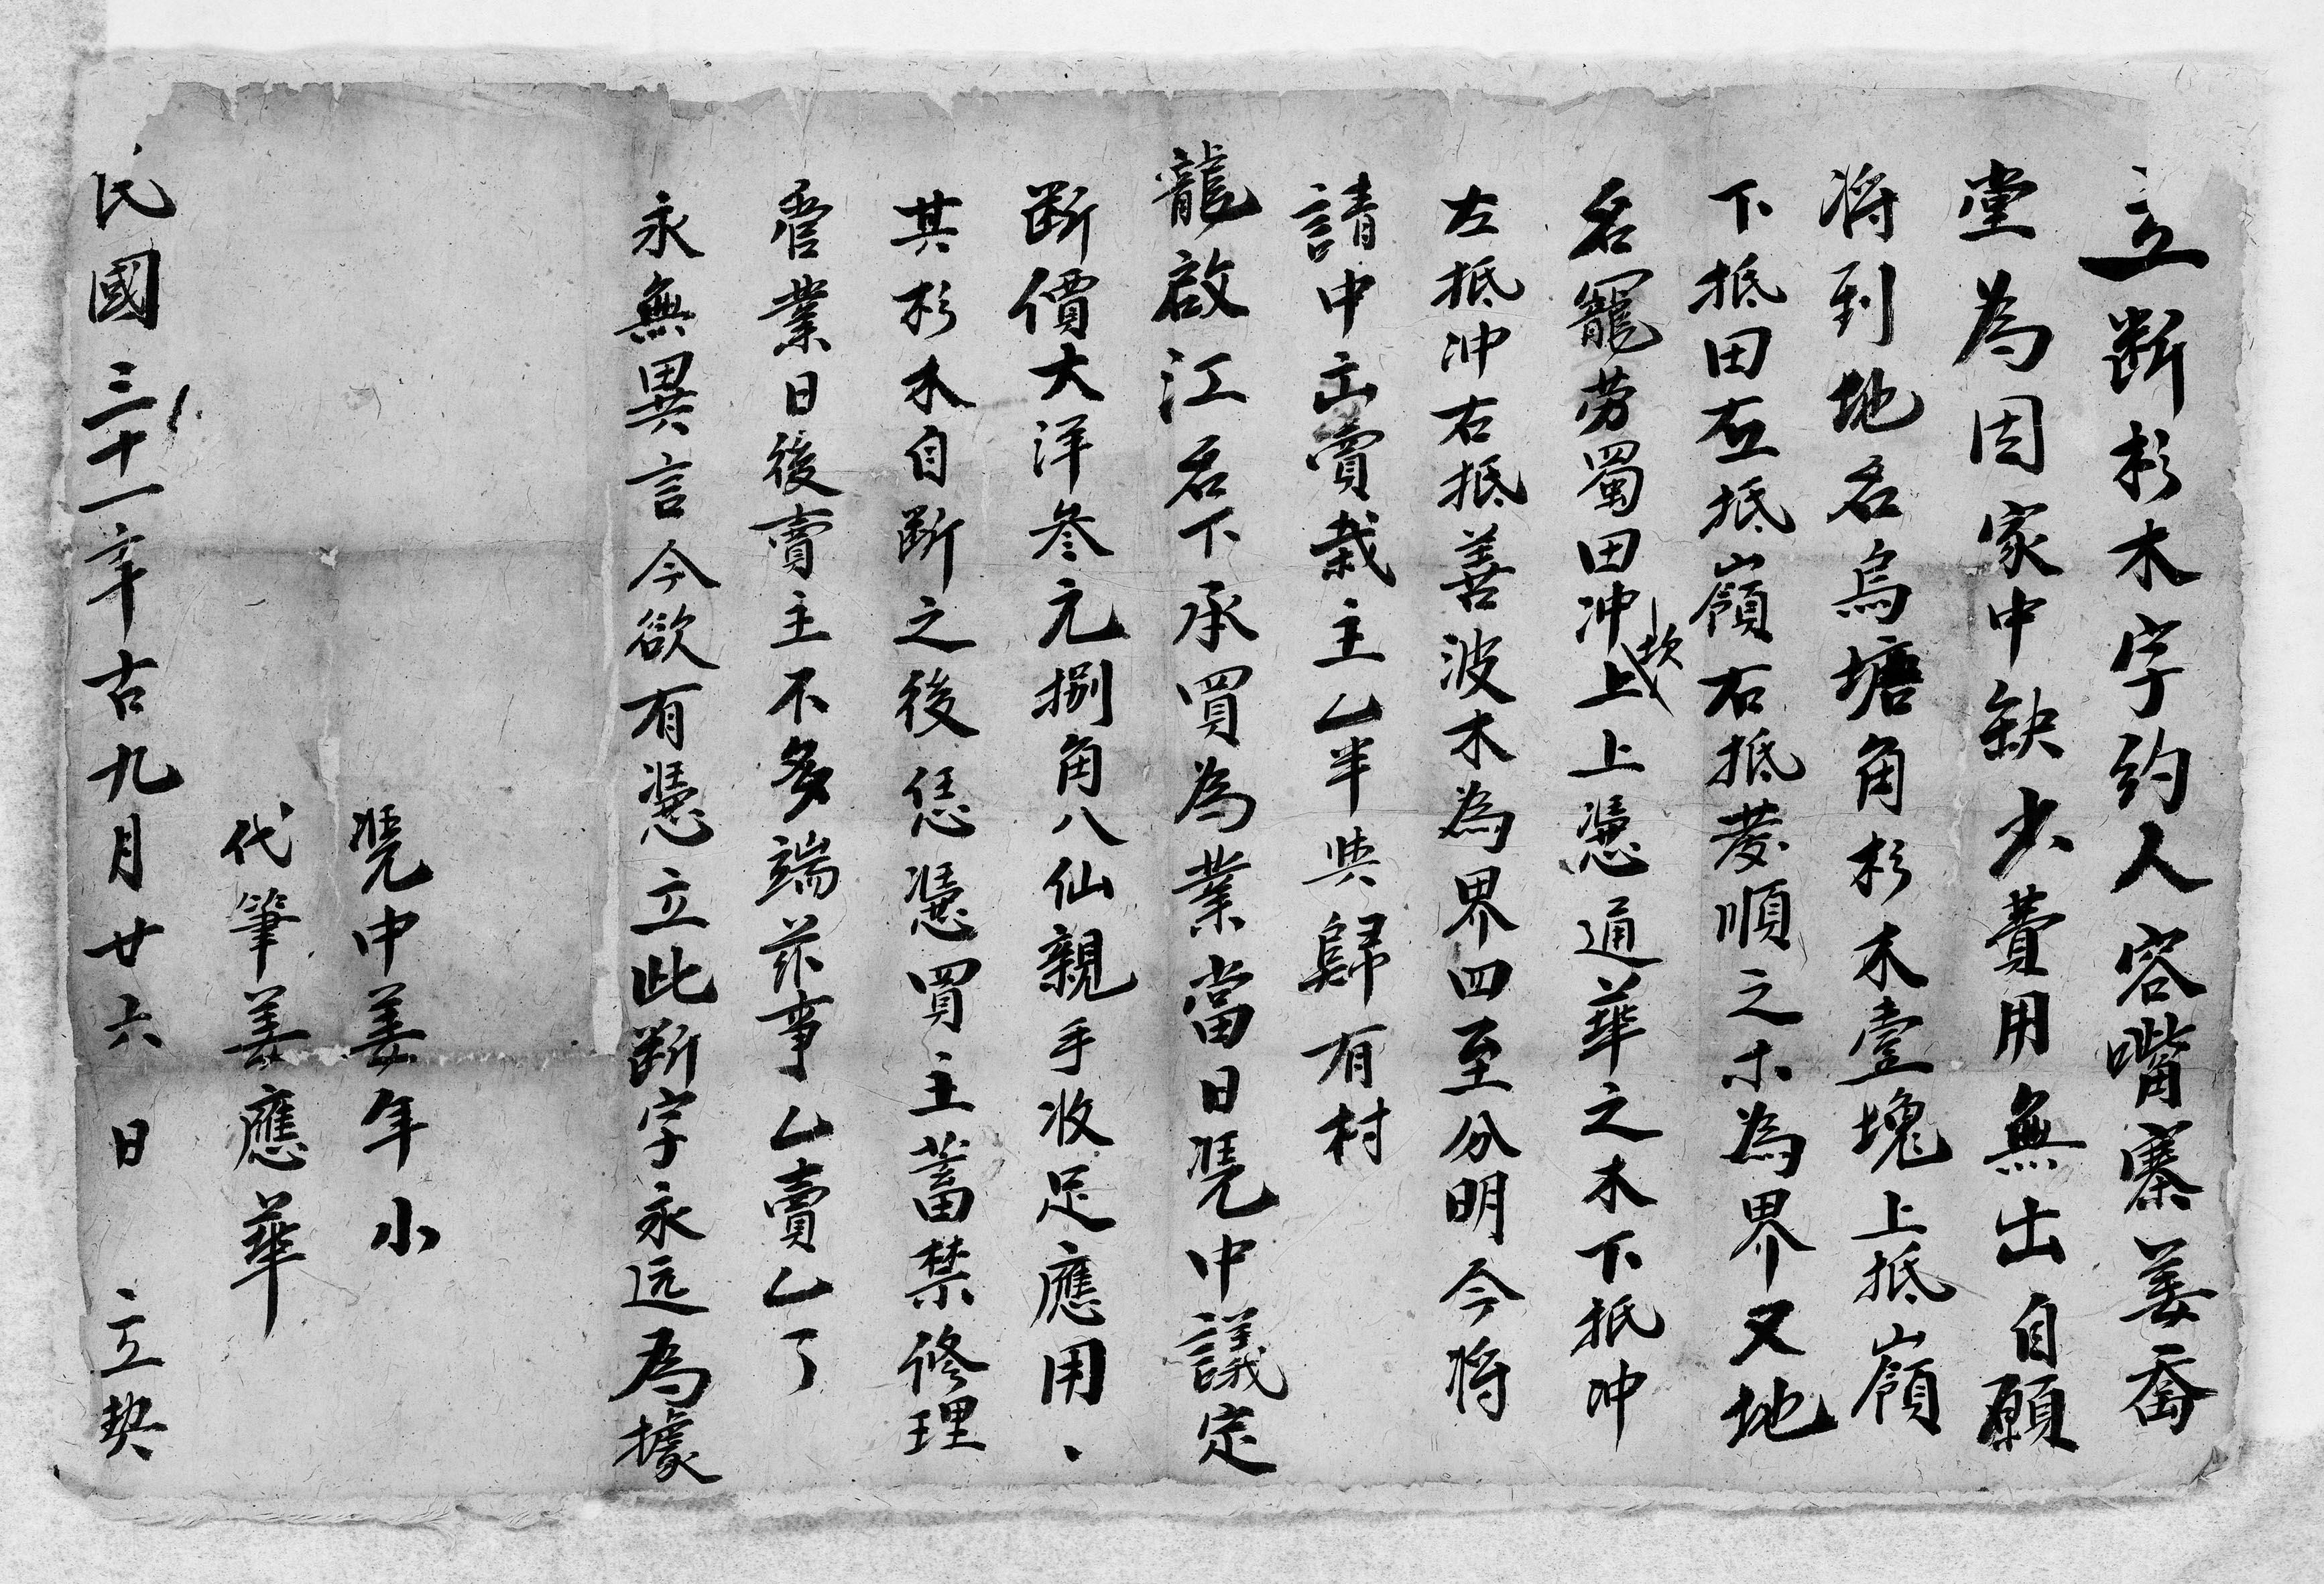 立断杉木字约人容嘴寨姜喬
堂為因家中缺少費用無出自願
将到地名烏塘角杉木壹塊上抵嶺
下抵田左抵嶺右抵發順之木為界又地
名寵劳蜀田冲坎上上憑通華之木下抵冲
左抵冲右抵善波木為界四至分明今将
請中出賣栽主乙半典歸有村
龍啟江名下承買為業當日凴中議定
断價大洋叁元捌角八仙親手收足應用、
其杉木自断之後恁憑買主蓄禁修理
管業日後賣主不多端茲事乙賣乙了
永無異言今欲有憑立此断字永远為據
凴中姜年小
代筆姜應華
民國三十一年古九月廿六日 立契